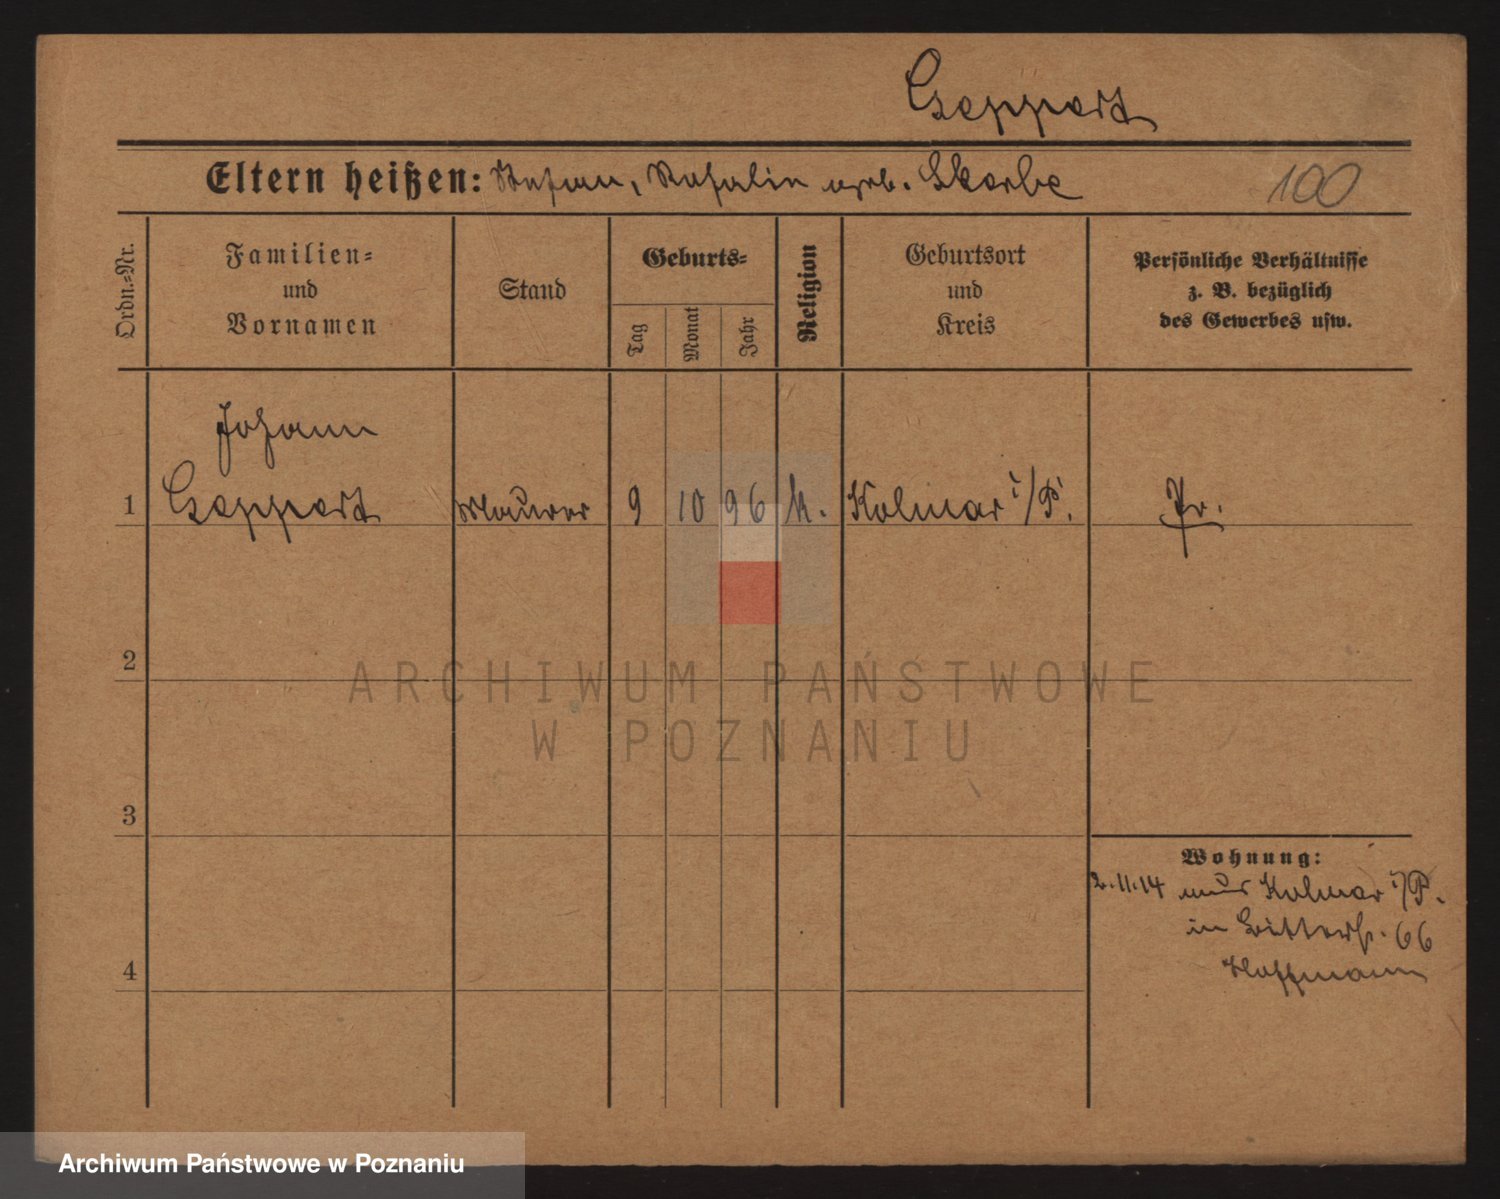 Geppert
Eltern heißen: Stefan, Rosalie geb. Skorbe
100
Ordn.-Nr.
Familien-
und
Vornamen
Stand
Geburts-
Tag
Monat
Jahr
Religion
Geburtsort
und
Kreis
Persönliche Verhältnisse
z. B. bezüglich
des Gewerbes usw.
Johann
1 Geppert Maurer 9 10 96 k. Kolmar i/P. Pr.
2
3
4
Wohnung:
2.11.14 aus Kolmar i/P.
in 66
Hoffmann
ARCHIWUM PAŃSTWOWE
W POZNANIU
Archiwum Państwowe w Poznaniu